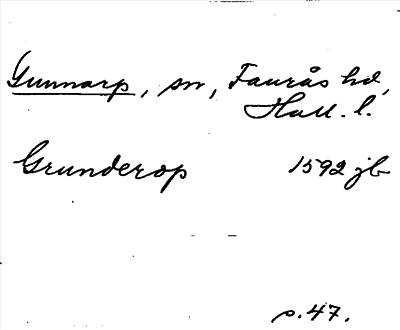 Gunnarp, sn, Faurås hd,
Hall. l.
Grunderop 1592 jb
s. 47.